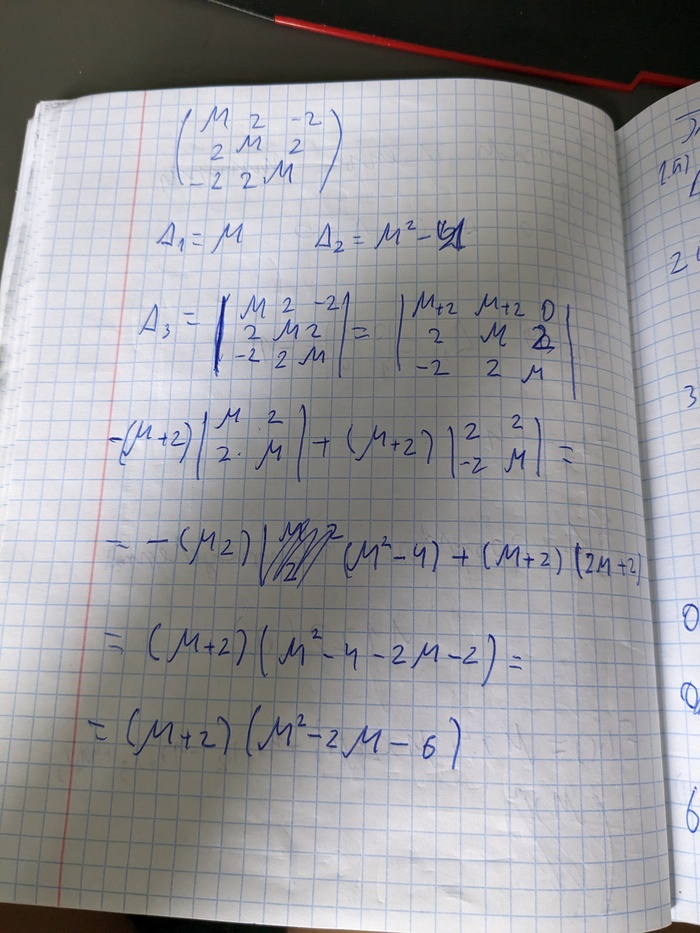 ( M 2 -2
2 M 2
-2 2 M )
Δ₁ = M Δ₂ = M² -
Δ₃ = | M 2 -2 | = | M+2 M+2 0 |
| 2 M 2 | | 2 M 2 |
| -2 2 M | | -2 2 M |
-(M+2) | M 2 | + (M+2) | 2 2 | =
| 2 M | | -2 M |
= -(M2) (M²-4) + (M+2) (2M+2)
= (M+2) (M²-4-2M-2) =
= (M+2) (M²-2M-6)
1.5)
2
3
0
0
6